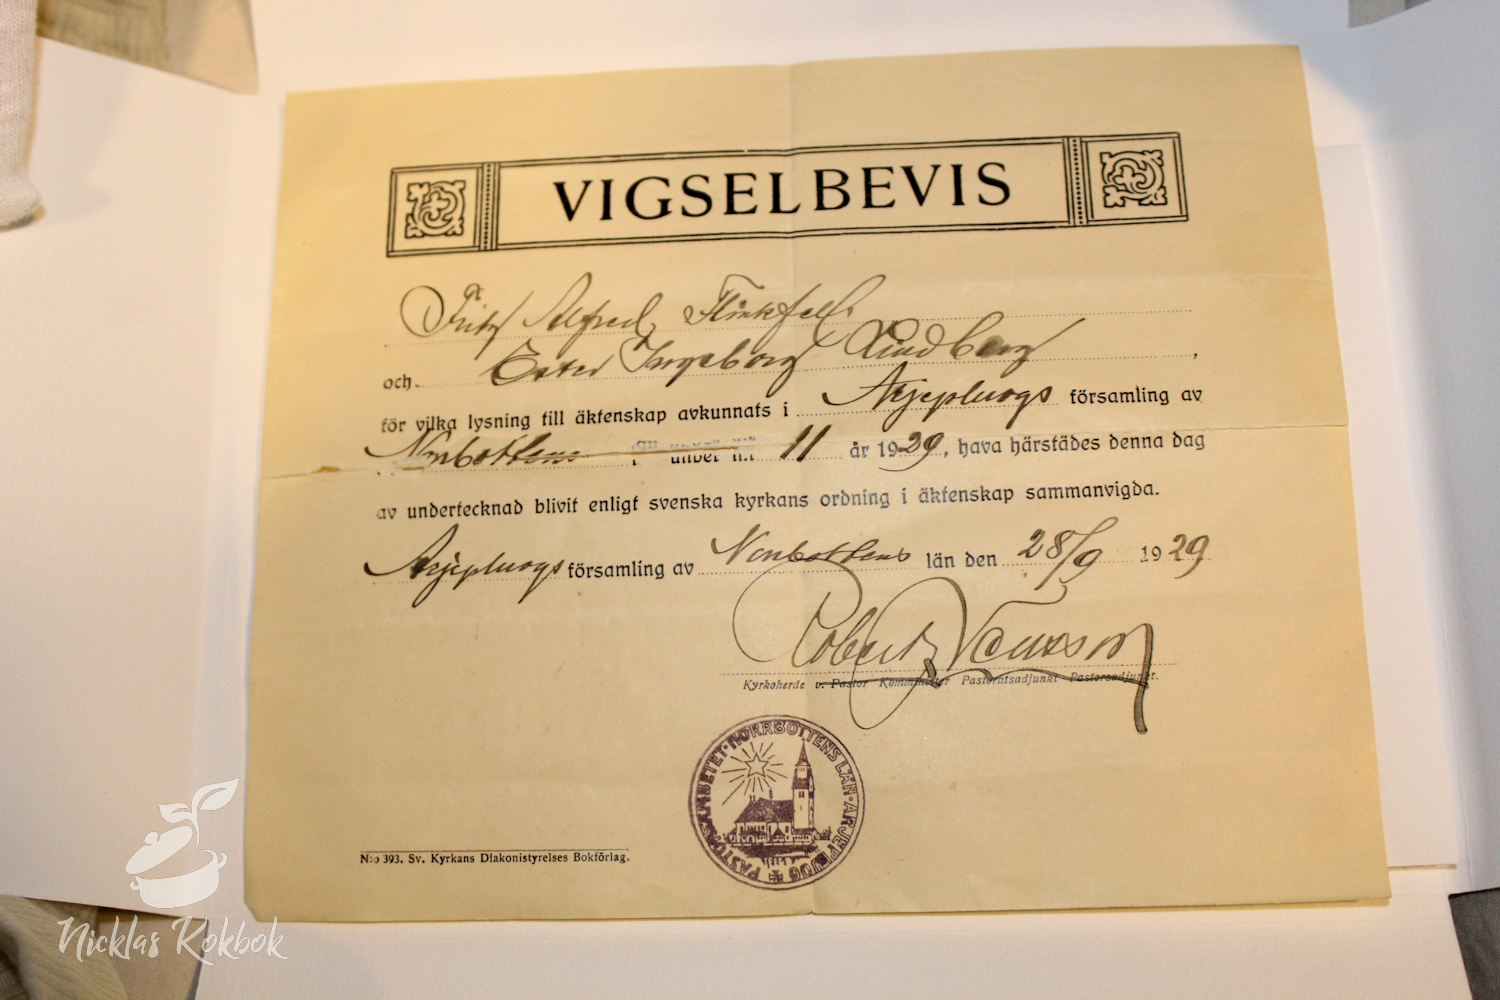 VIGSELBEVIS
Fritz Alfred Flinkfelt
och Ester Ingeborg Lindberg,
för vilka lysning till äktenskap avkunnats i Arjepluogs församling av
Norrbottens under n:r 11 år 1929, hava härstädes denna dag
av undertecknad blivit enligt svenska kyrkans ordning i äktenskap sammanvigda.
Arjepluogs församling av Norrbottens län den 28/9 1929
Robert
Kyrkoherde v. Pastor Komminister Pastoratsadjunkt Pastorsadjunkt.
PASTORSÄMBETET · NORRBOTTENS LÄN · ARJEPLUOG
N:o 393. Sv. Kyrkans Diakonistyrelses Bokförlag.
Nicklas Kokbok